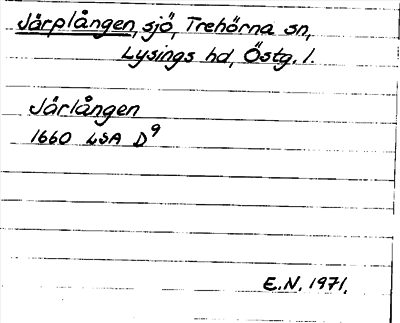 Jårplången, sjö, Trehörna sn,
Lysings hd, Östg. l.
Jårlången
1660 LSA D9
E.N. 1971.